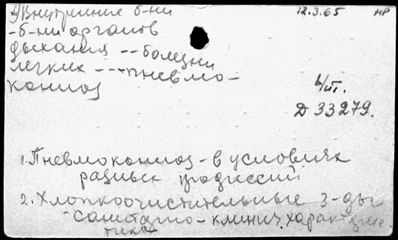 Внутренние б-ни 12.3.65 нр
-б-ни органов
дыхания -- болезни
легких --- пневмо-
кониоз
Д 33279.
1. Пневмокониоз - в условиях
разных профессий
2. Хлопкоочистительные з-ды
- санитарно - клинич. характерис
тика